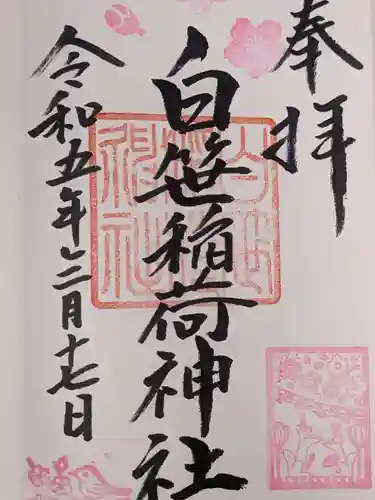 奉拝
白笹稲荷神社
令和五年三月十七日